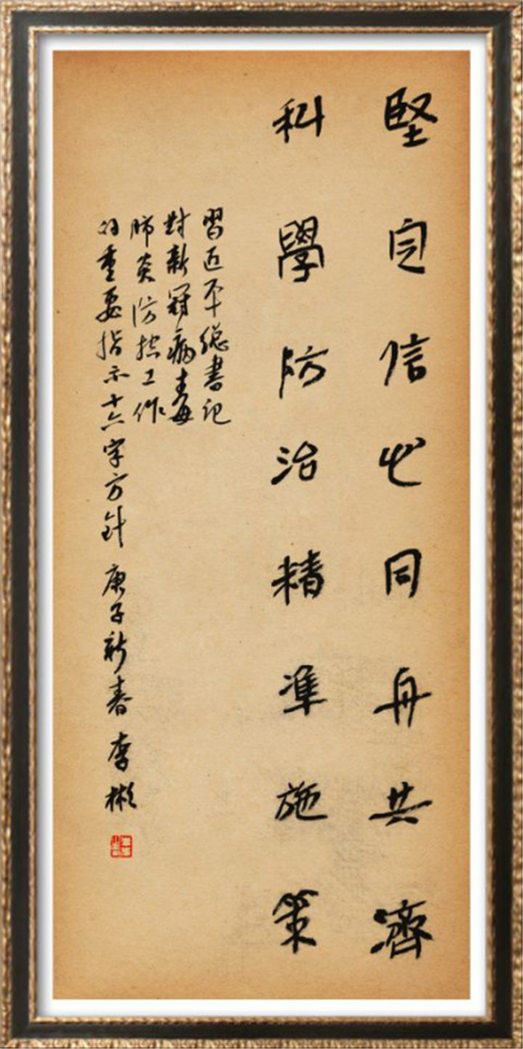 堅定信心同舟共濟
科學防治精準施策
習近平總書記
對新冠病毒
肺炎防控工作
的重要指示十六字方針 庚子新春 李彬